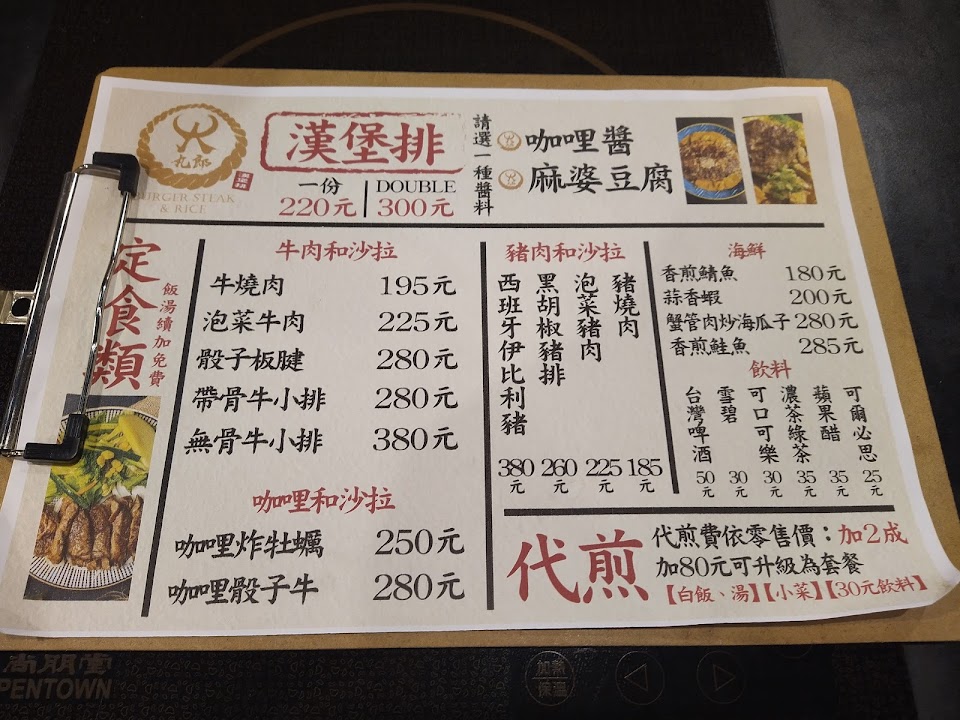 九郎
漢堡排
BURGER STEAK
& RICE
漢堡排
一份
220元
DOUBLE
300元
請選一種醬料
咖哩醬
麻婆豆腐
定食類
飯湯續加免費
牛肉和沙拉
牛燒肉 195元
泡菜牛肉 225元
骰子板腱 280元
帶骨牛小排 280元
無骨牛小排 380元
咖哩和沙拉
咖哩炸牡蠣 250元
咖哩骰子牛 280元
豬肉和沙拉
豬燒肉 185元
泡菜豬肉 225元
黑胡椒豬排 260元
西班牙伊比利豬 380元
海鮮
香煎鯖魚 180元
蒜香蝦 200元
蟹管肉炒海瓜子 280元
香煎鮭魚 285元
飲料
可爾必思 25元
蘋果醋 35元
濃茶綠茶 35元
可口可樂 30元
雪碧 30元
台灣啤酒 50元
代煎
代煎費依零售價：加2成
加80元可升級為套餐
【白飯、湯】【小菜】【30元飲料】
尚朋堂
PENTOWN
加熱
保溫